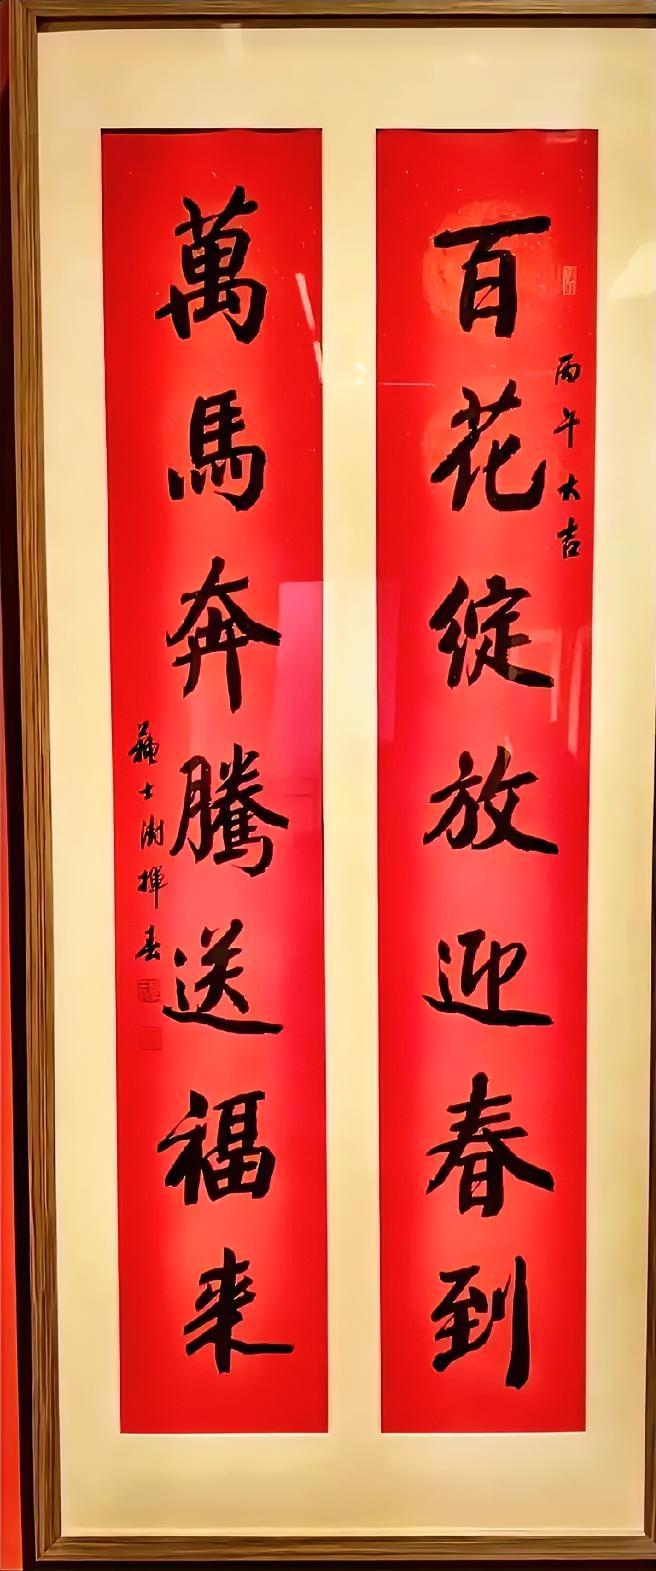 百花綻放迎春到
丙午大吉
萬馬奔騰送福来
蘇士澍揮春